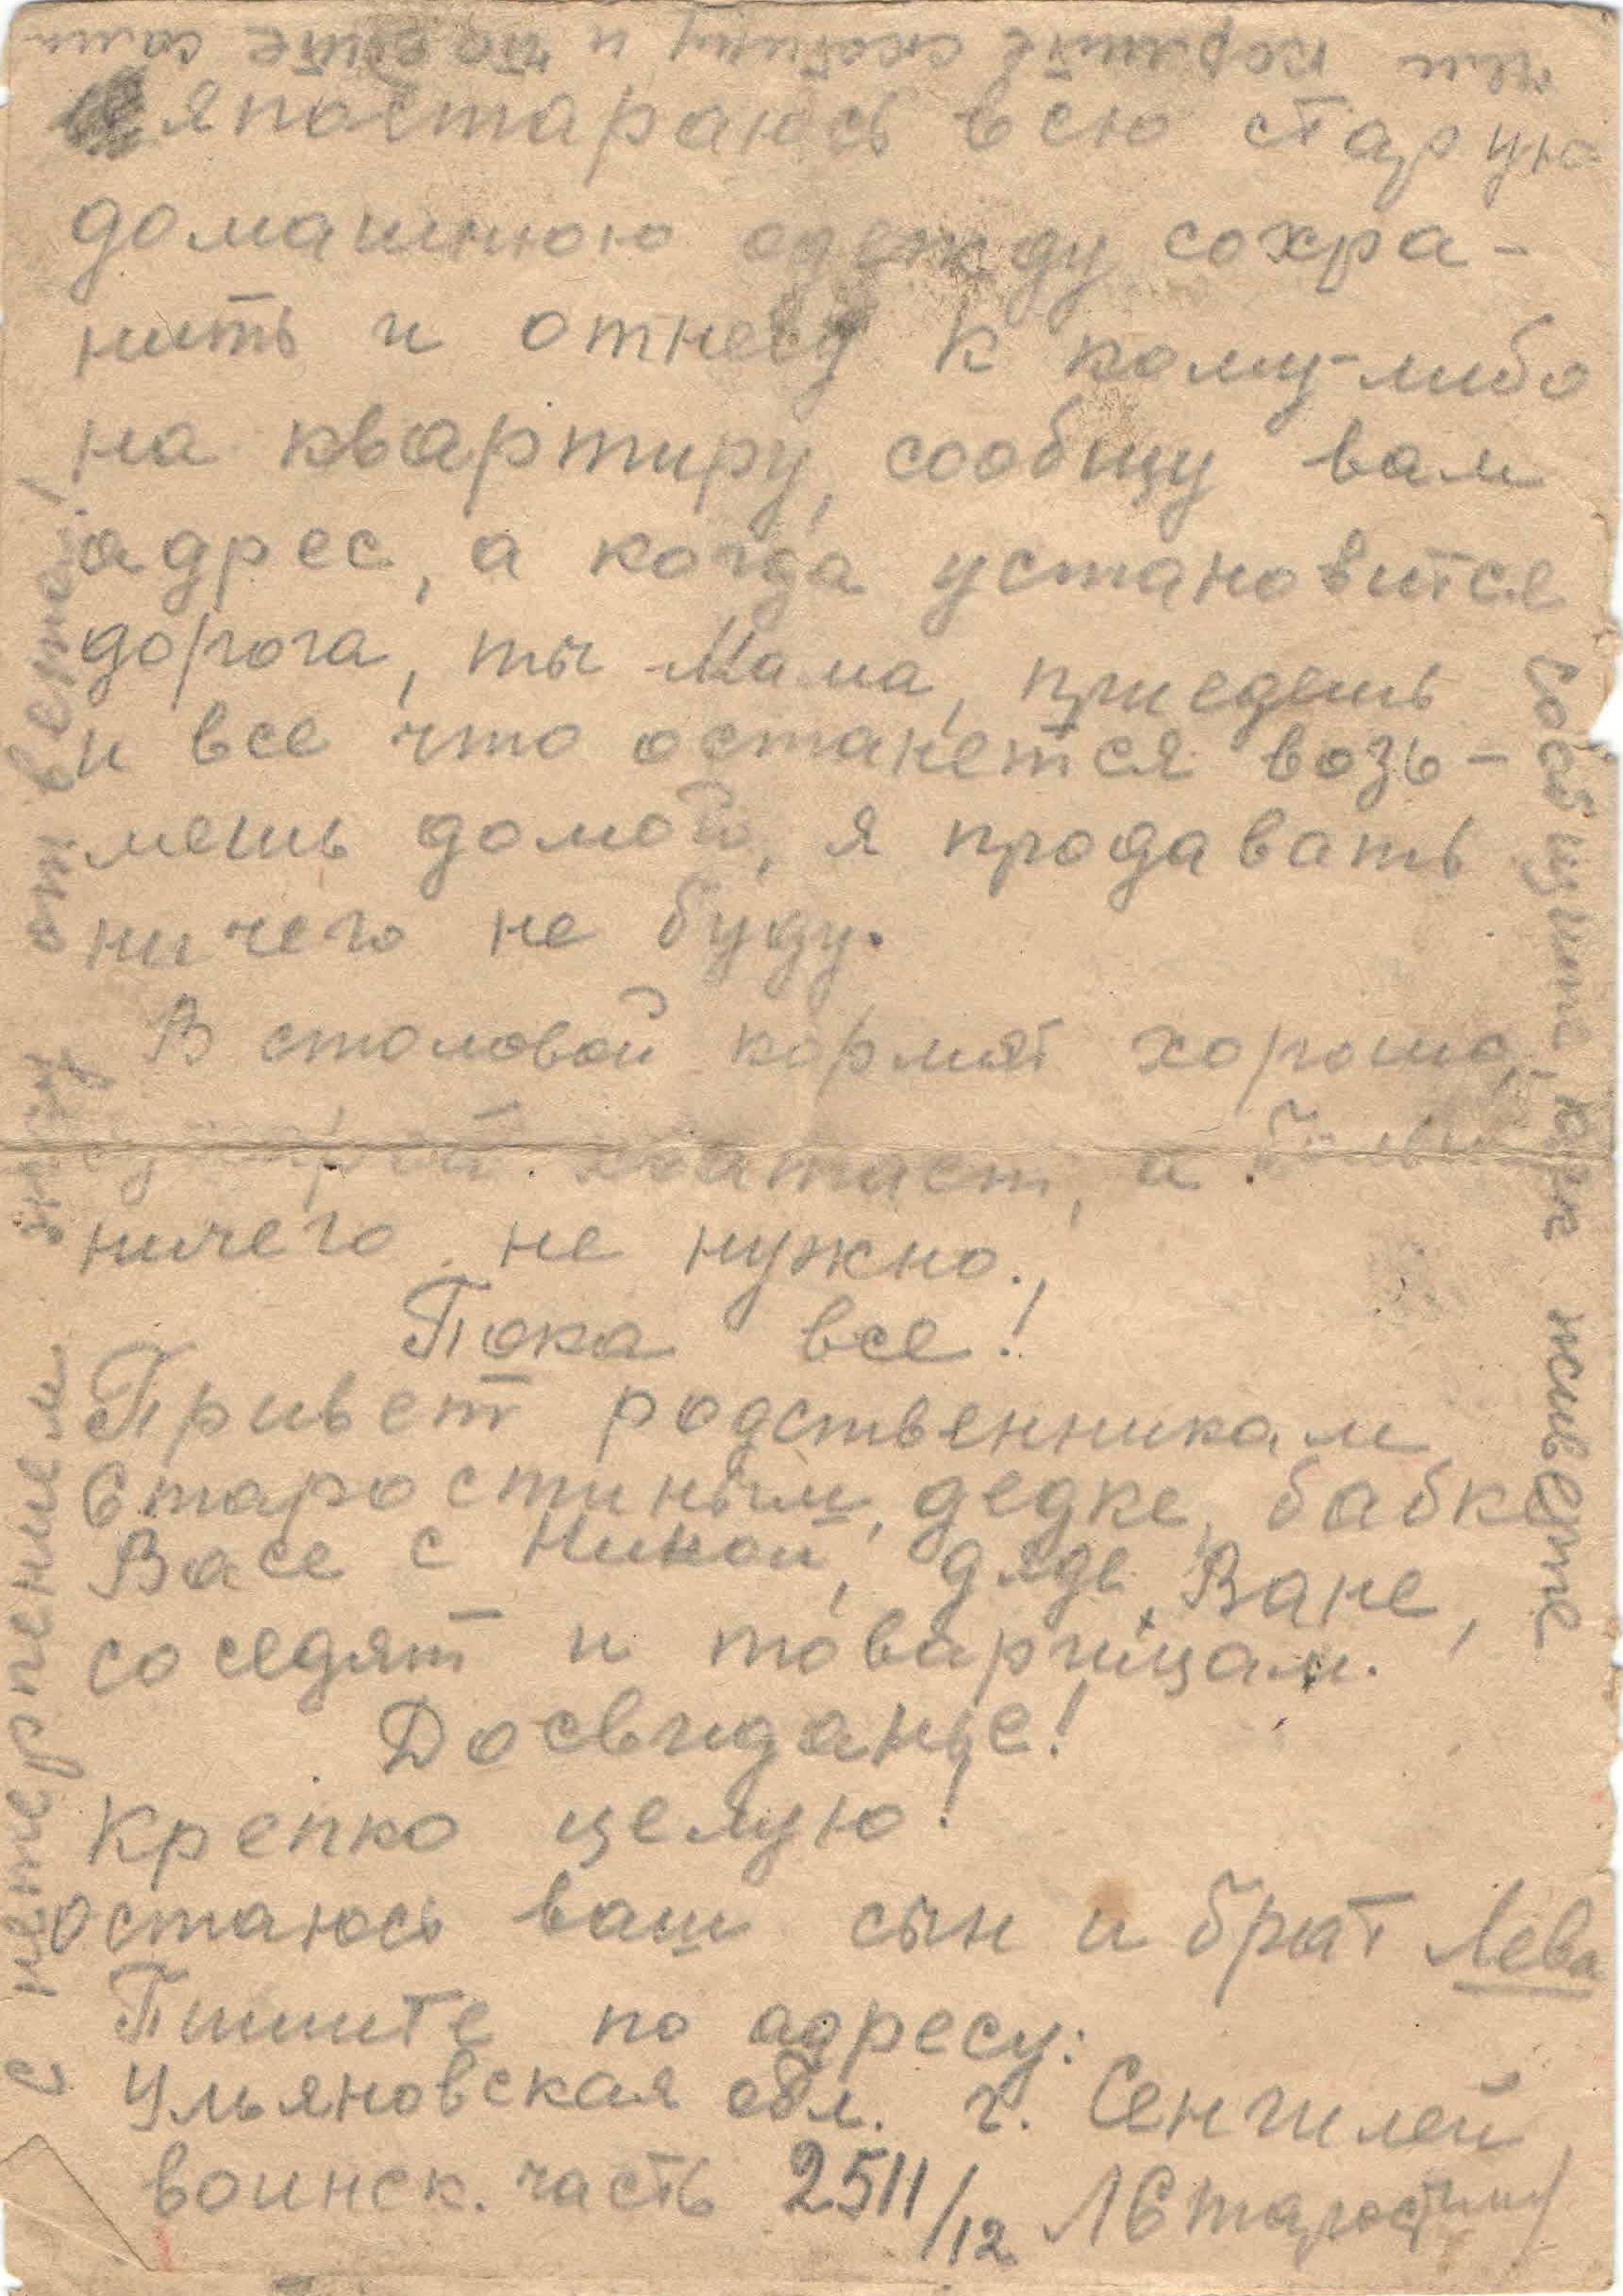 я постараюсь всю старую
домашнюю одежду сохра-
нить и отнесу к кому-либо
на квартиру, сообщу вам
адрес, а когда установится
дорога, ты Мама, приедешь
и все что останется возь-
мешь домой, я продавать
ничего не буду.
В столовой кормят хорошо,
хватает, а
ничего не нужно.
Пока все!
Привет родственникам
Старостиным, дедке, бабке
Васе с Никой, дяде Ване,
соседят и товарищам.
Досвиданье!
Крепко целую!
остаюсь ваш сын и брат Лева
Пишите по адресу:
Ульяновская обл. г. Сенгилей,
воинск. часть 2511/12 Л Старостину
с нетерпением жду ответа!
Сообщите, как живете
чем кормите скотину и что едите сами